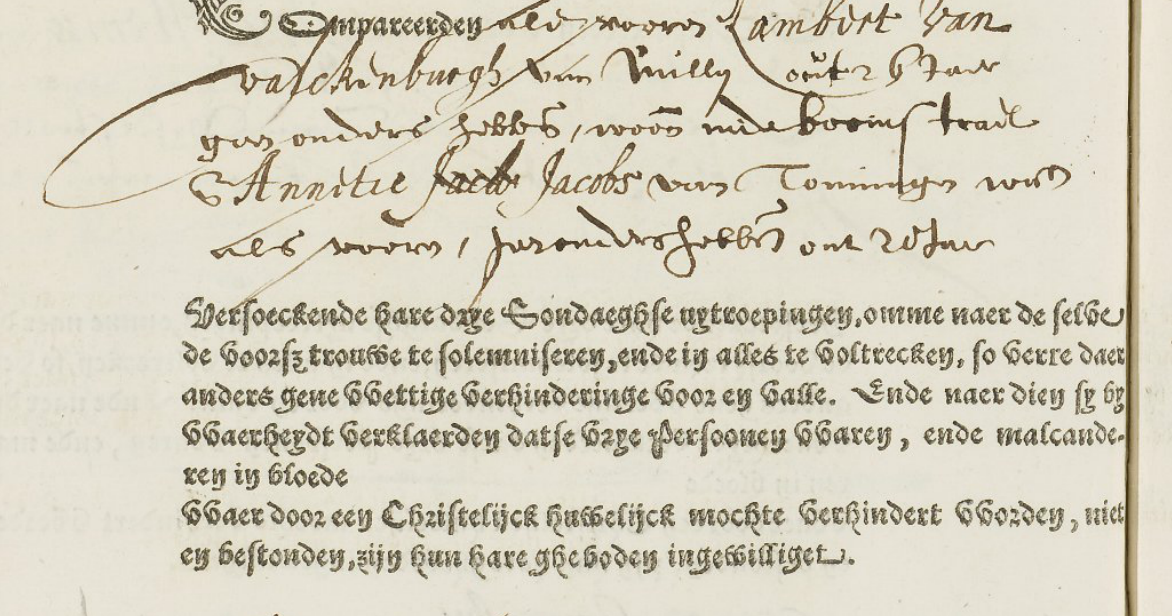 Compareerden als vooren Lambert van
valckenburgh van out 26 Jaer
geen ouders hebbende, woon inde boomstraet
& Annitie Jacobs van Tonningen woon
als voorn, geen ouders hebben out 28 Jaer
Versoeckende hare drye Sondaeghse uytroepingen, omme naer de selve
de voorsz trouwe te solemniseren, ende in alles te voltrecken, so verre daer
anders gene wettige verhinderinge voor en valle. Ende naer dien sy by
waerheydt verklaerden datse vrye Persoonen waren, ende malcande-
ren in bloede
waer door een Christelijck huwelijck mochte verhindert worden, niet
en bestonden, zijn hun hare gheboden ingewilliget.